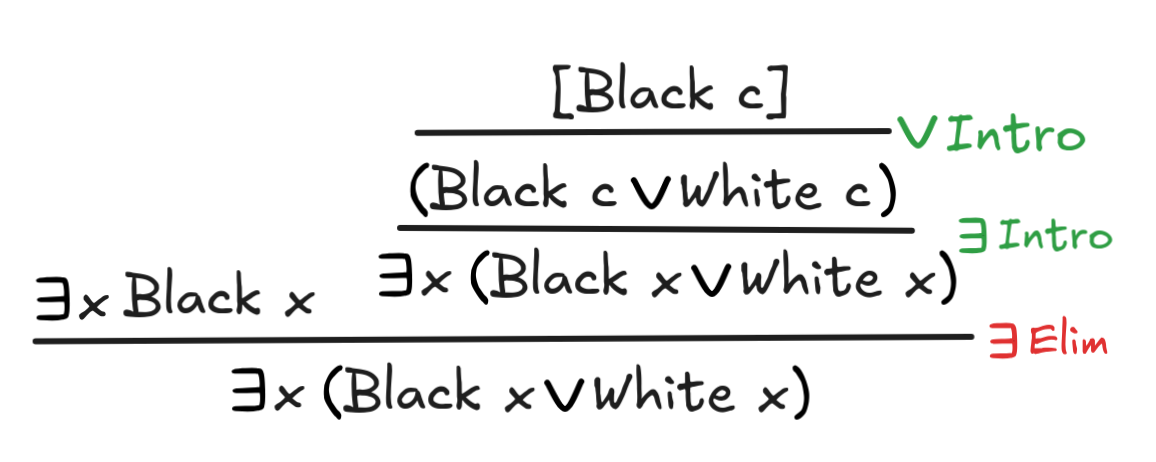 [Black c]
∨ Intro
(Black c ∨ White c)
∃ Intro
∃x (Black x ∨ White x)
∃x Black x
∃ Elim
∃x (Black x ∨ White x)